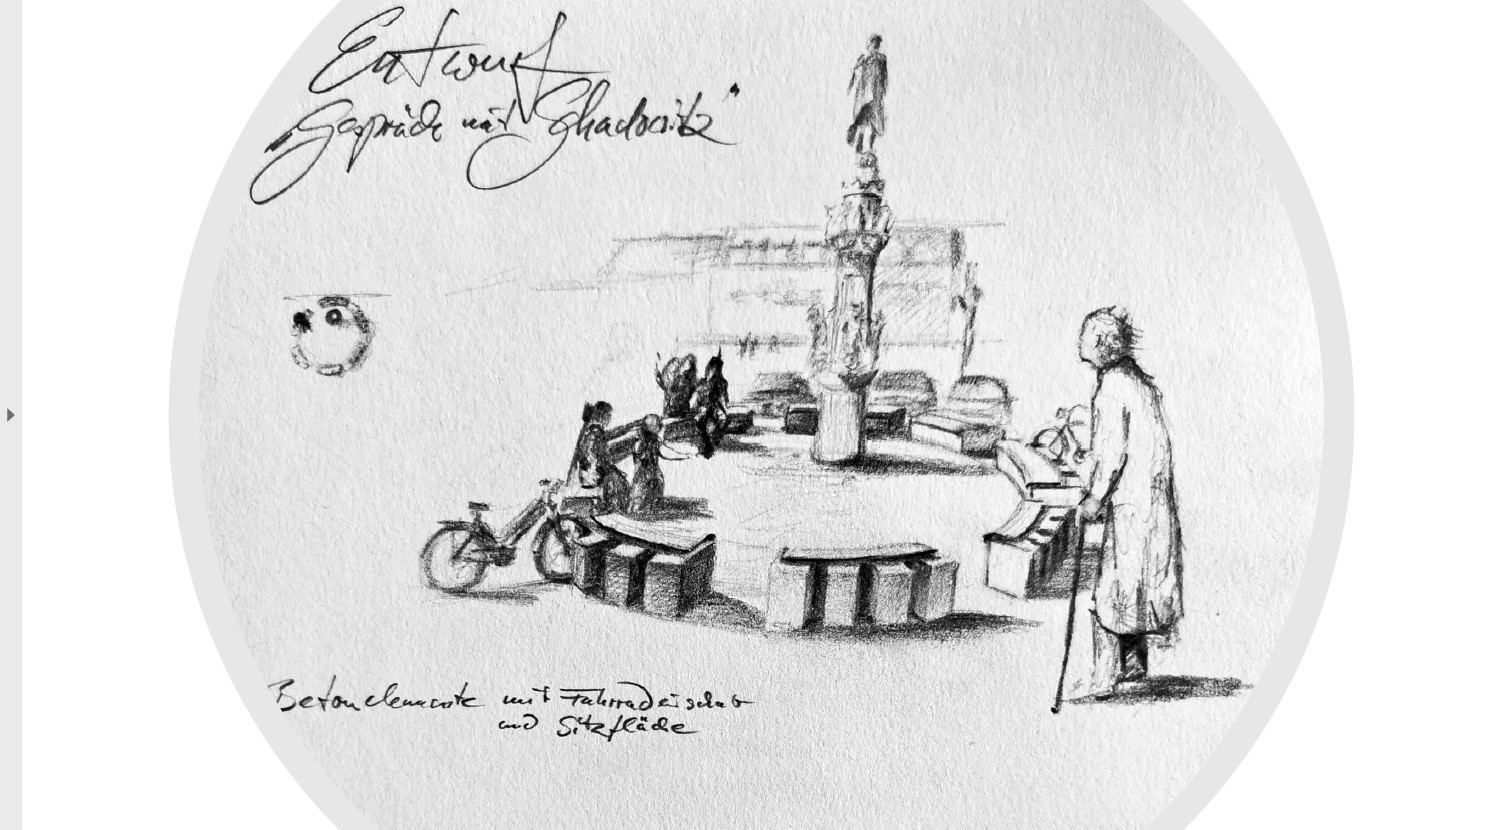 Entwurf
"Gespräch mit Schadowitz"
Betonelemente mit Fahrradeinschub
und Sitzfläche